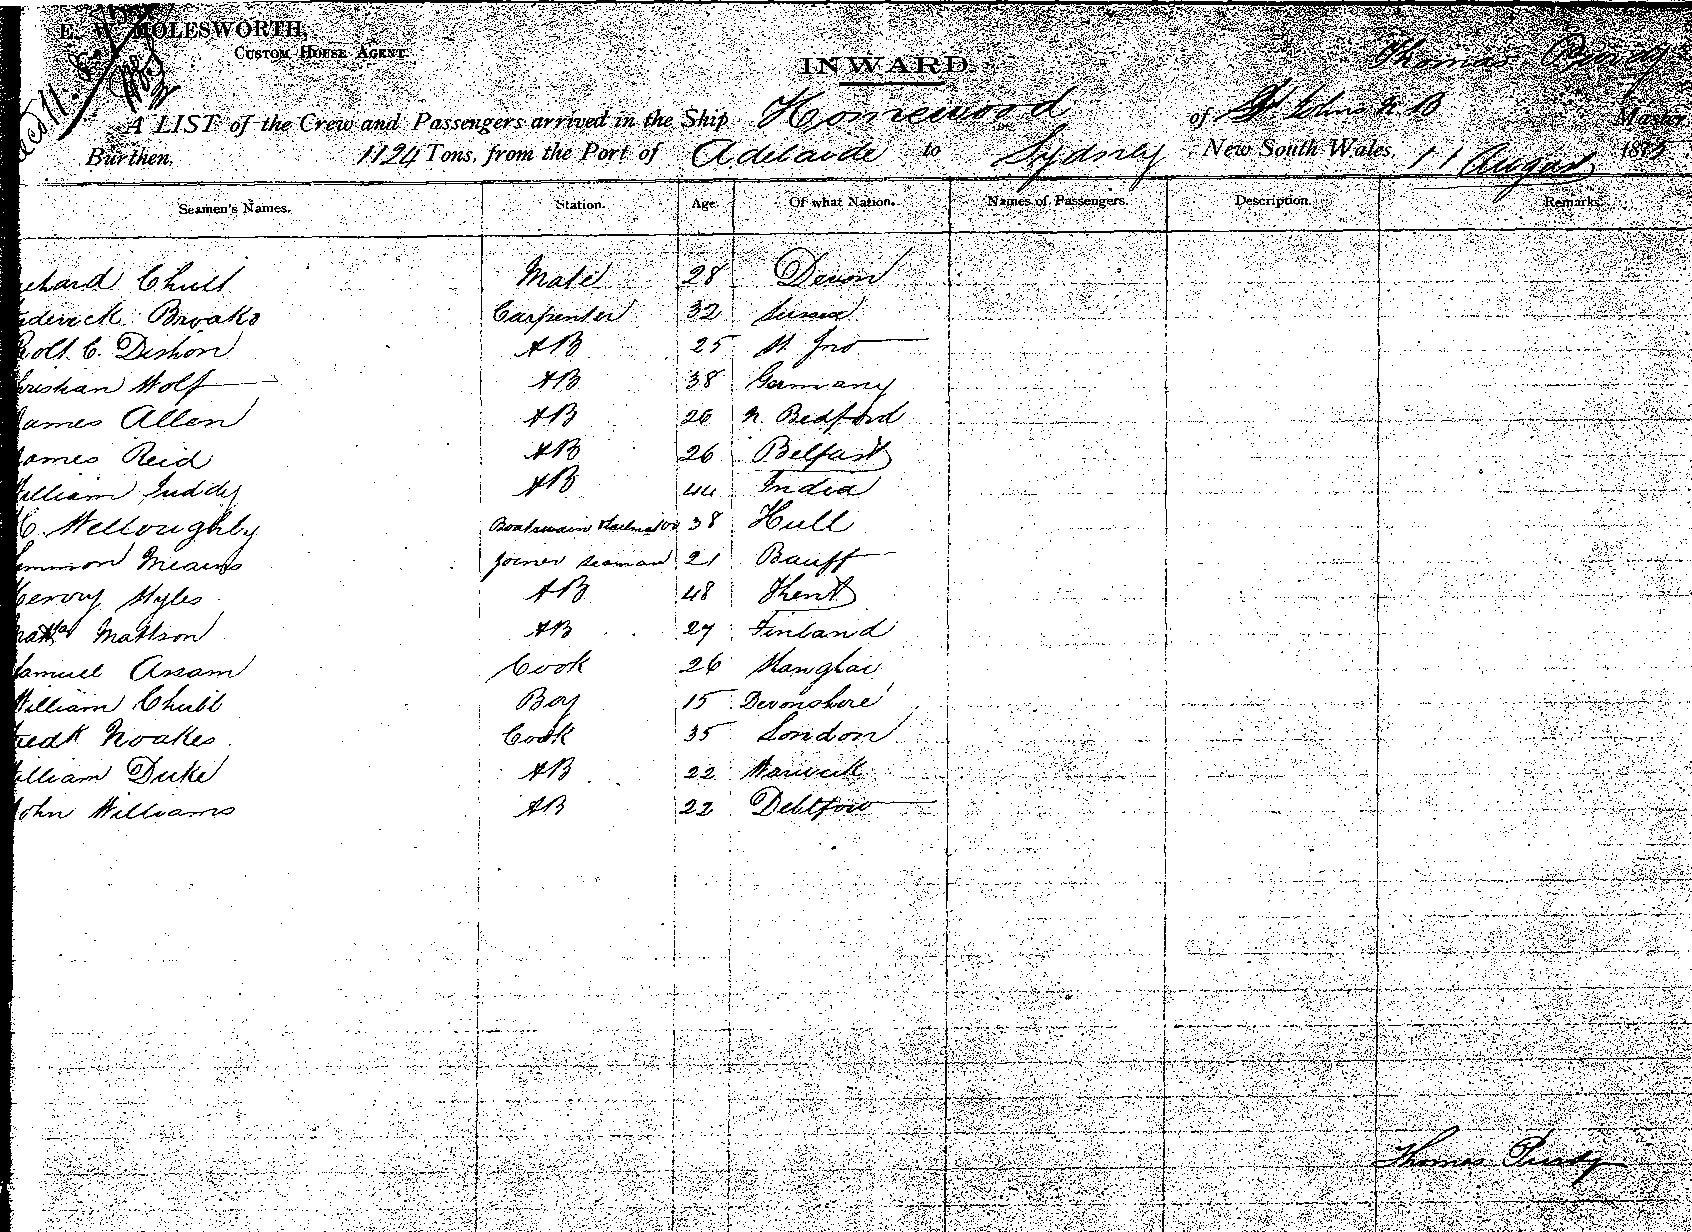 E. W. MOLESWORTH,
CUSTOM HOUSE AGENT.
INWARD.
Thomas
A LIST of the Crew and Passengers arrived in the Ship Homewood of St Johns N.B Master
Burthen, 1124 Tons, from the Port of Adelaide to Sydney New South Wales, 11 August 1875
Seamen's Names. Station. Age Of what Nation. Names of Passengers. Description. Remarks.
chard Chubb Mate 28 Devon
ederick Brooks Carpenter 32 Sussex
Robt. C. Dishon AB 25 St. Jno
hristian Wolf AB 38 Germany
James Allen AB 26 N. Bedford
James Reid AB 26 Belfast
William Juddy AB 44 India
H. Welloughby Boatswain & Sailmaker 38 Hull
Simmon Mearns Joiner Seaman 21 Banff
Henry Myles AB 48 Kent
Matts Mattson AB 27 Finland
Samuel Assam Cook 26 Shanghai
William Chubb Boy 15 Devonshire
Fredk Noakes Cook 35 London
William Duke AB 22 Warwick
John Williams AB 22 Debtford
Thomas